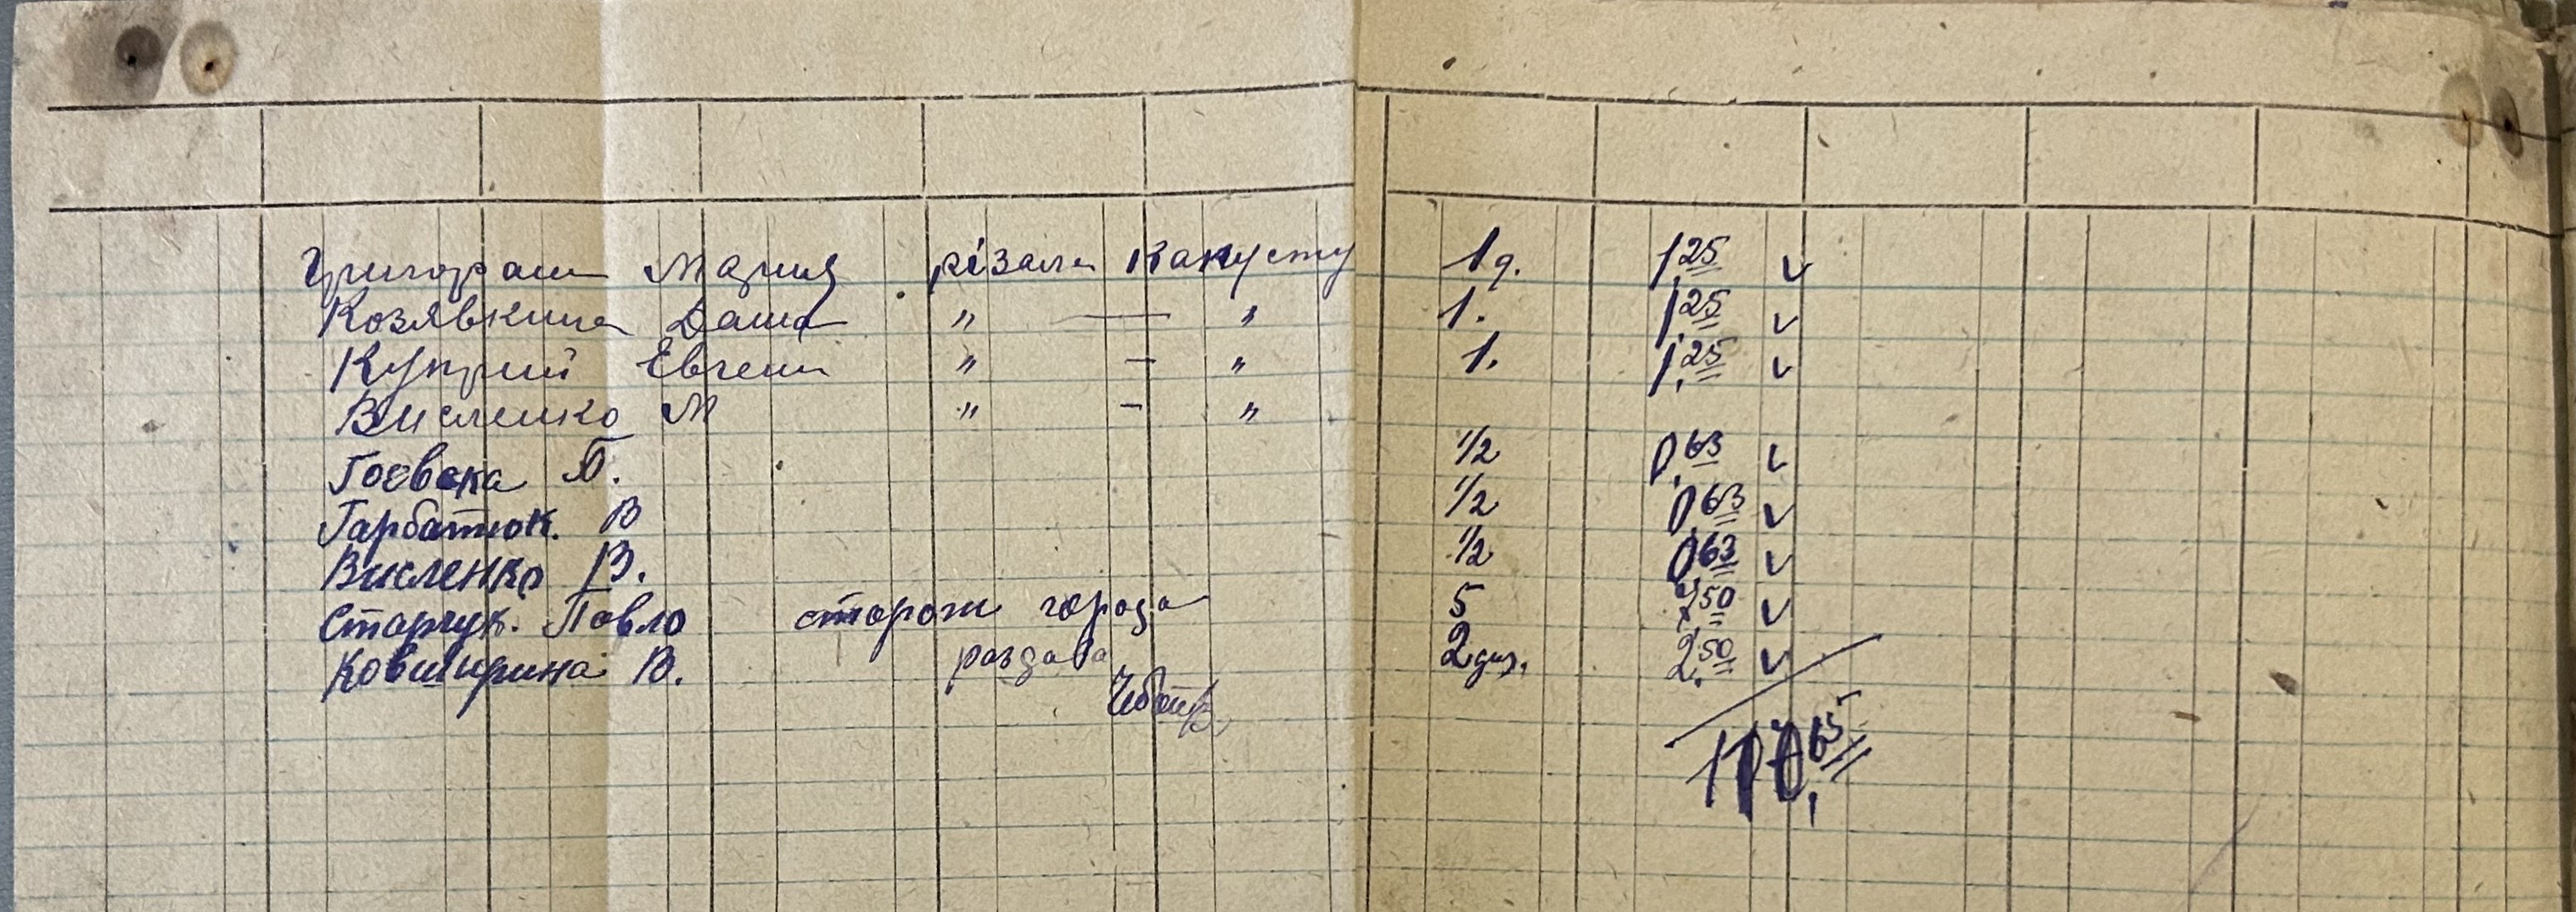 Григораш Мария різала капусту 1 д. 1,25 v
Козявкина Даша " — " 1. 1,25 v
Куприй Евгени " – " 1. 1,25 v
Висленко М " – "
Гоєвска П. 1/2 0,63 v
Гарбатюк. В 1/2 0,63 v
Висленко В. 1/2 0,63 v
Старчук. Павло сторож города 5 2,50 v
Ковширина В. раздава 2 дня. 2,50 v
65